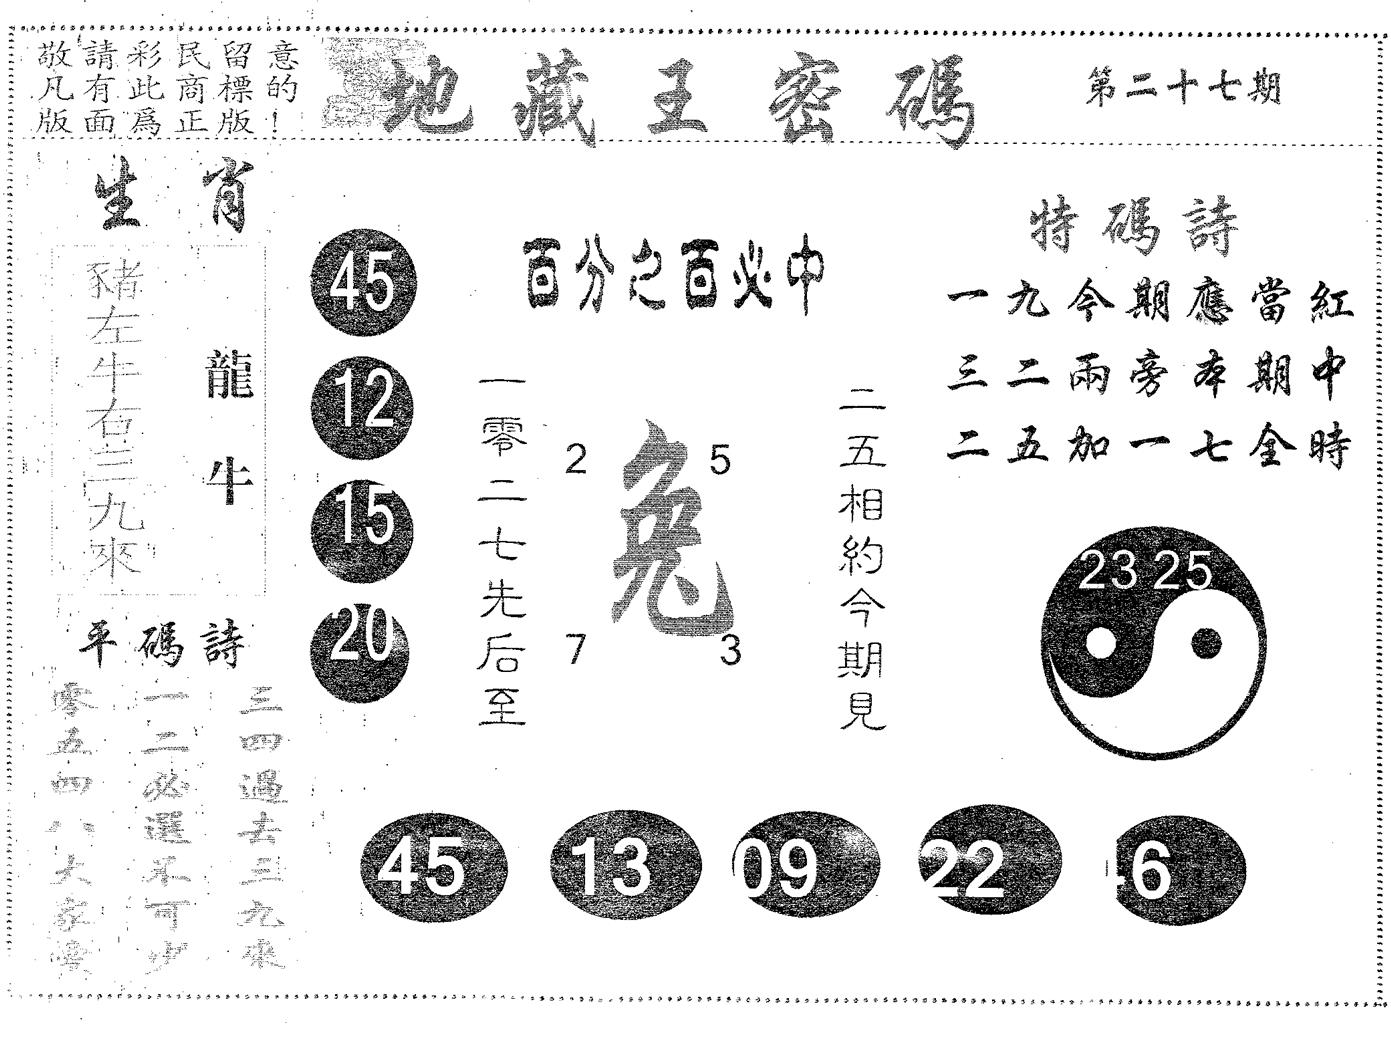 敬請彩民留意
凡有此商標的
版面爲正版！
地藏王密碼
第二十七期
生肖
豬左牛右三九來
龍牛
平碼詩
零五四八大家要
一二必選不可少
三四過去三九來
45
12
15
20
百分之百必中
一零二七先后至
2 5
兔
7 3
二五相約今期見
特碼詩
一九今期應當紅
三二兩旁本期中
二五加一七全時
23 25
45 13 09 22 46